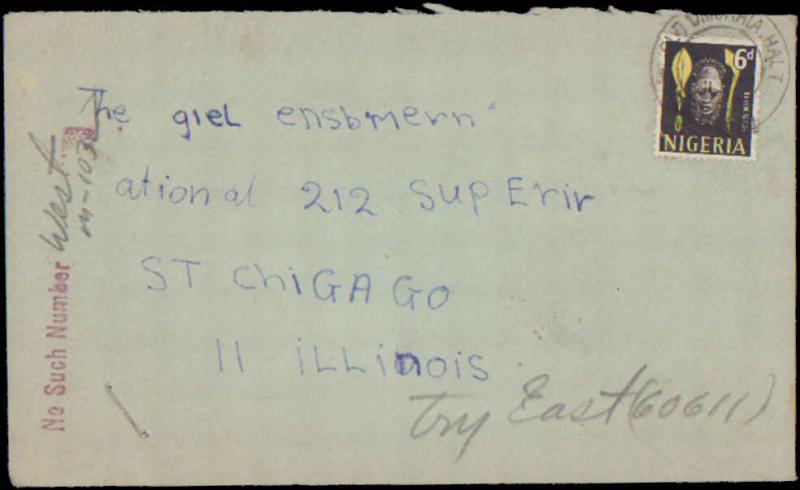 The giel ensbmern
ational 212 SupErir
ST ChiGAGO
11 iLLinois
Try East (60611)
No Such Number
West
6d
NIGERIA
UMUAHIA.